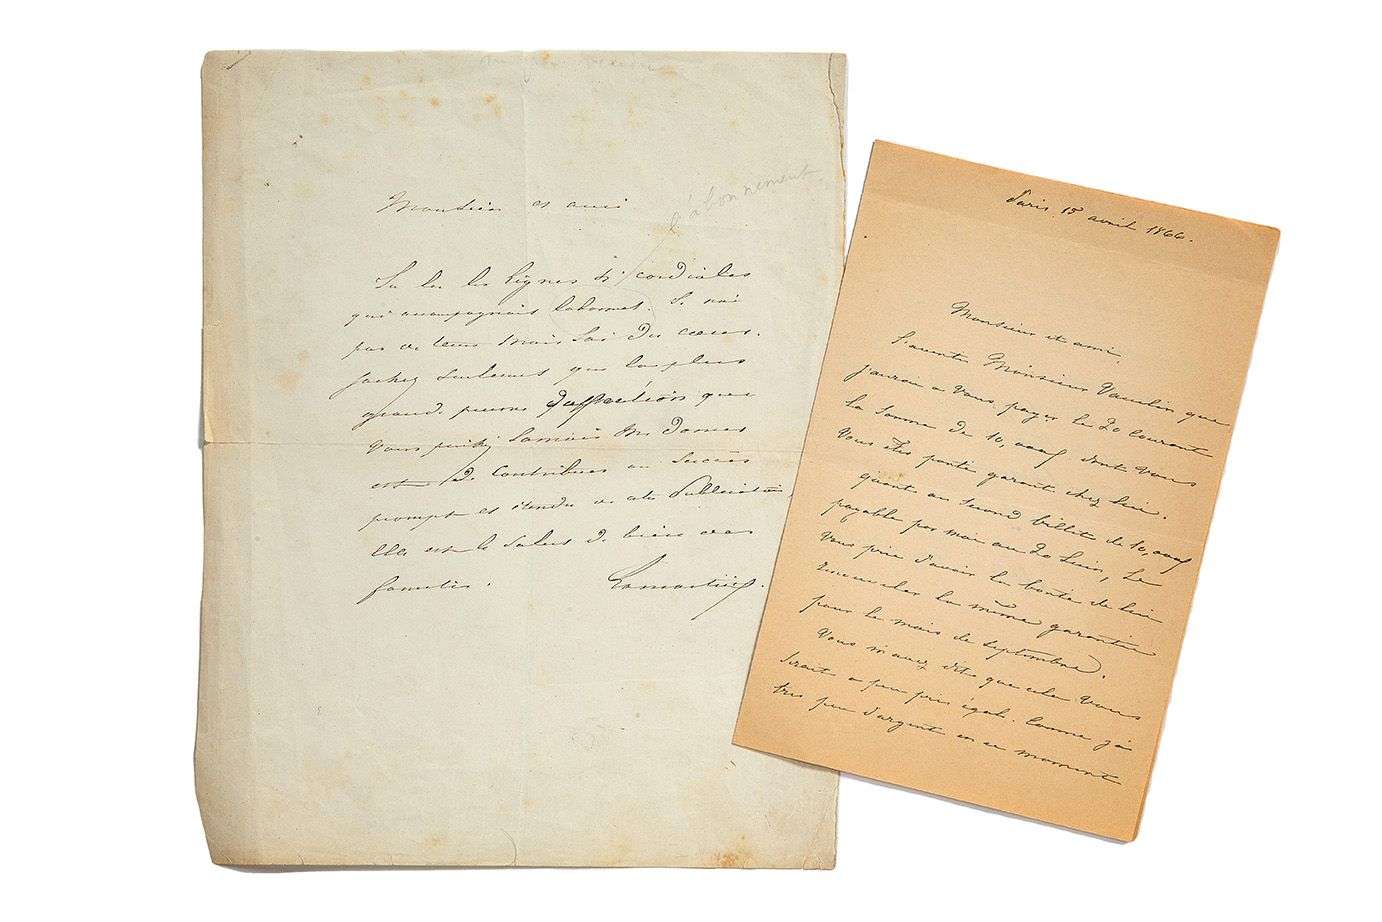 Monsieur et ami
l'abonnement
J'ai lu les lignes si cordiales
qui accompagnent l'abonnet. Je n'ai
pas de tems mais j'ai du cœur.
Sachez seulement que la plus
grande preuve d'affection que
vous puissiez jamais me donner
est de contribuer au succès
prompt et étendu de cette Publication,
elle est le salut de bien des
familles. Lamartine.
Paris 15 avril 1866.
Monsieur et ami
Monsieur Vaulin que
j'aurai à vous payer le 20 courant
la somme de 10,000f dont vous
vous êtes porté garant chez lui.
quant au second billet de 10,000f
payable par moi au 20 Juin, je
vous prie d'avoir la bonté de lui
la même garantie
pour le mois de septembre.
Vous m'avez dit que cela vous
serait à peu près égal. Comme j'ai
très peu d'argent en ce moment